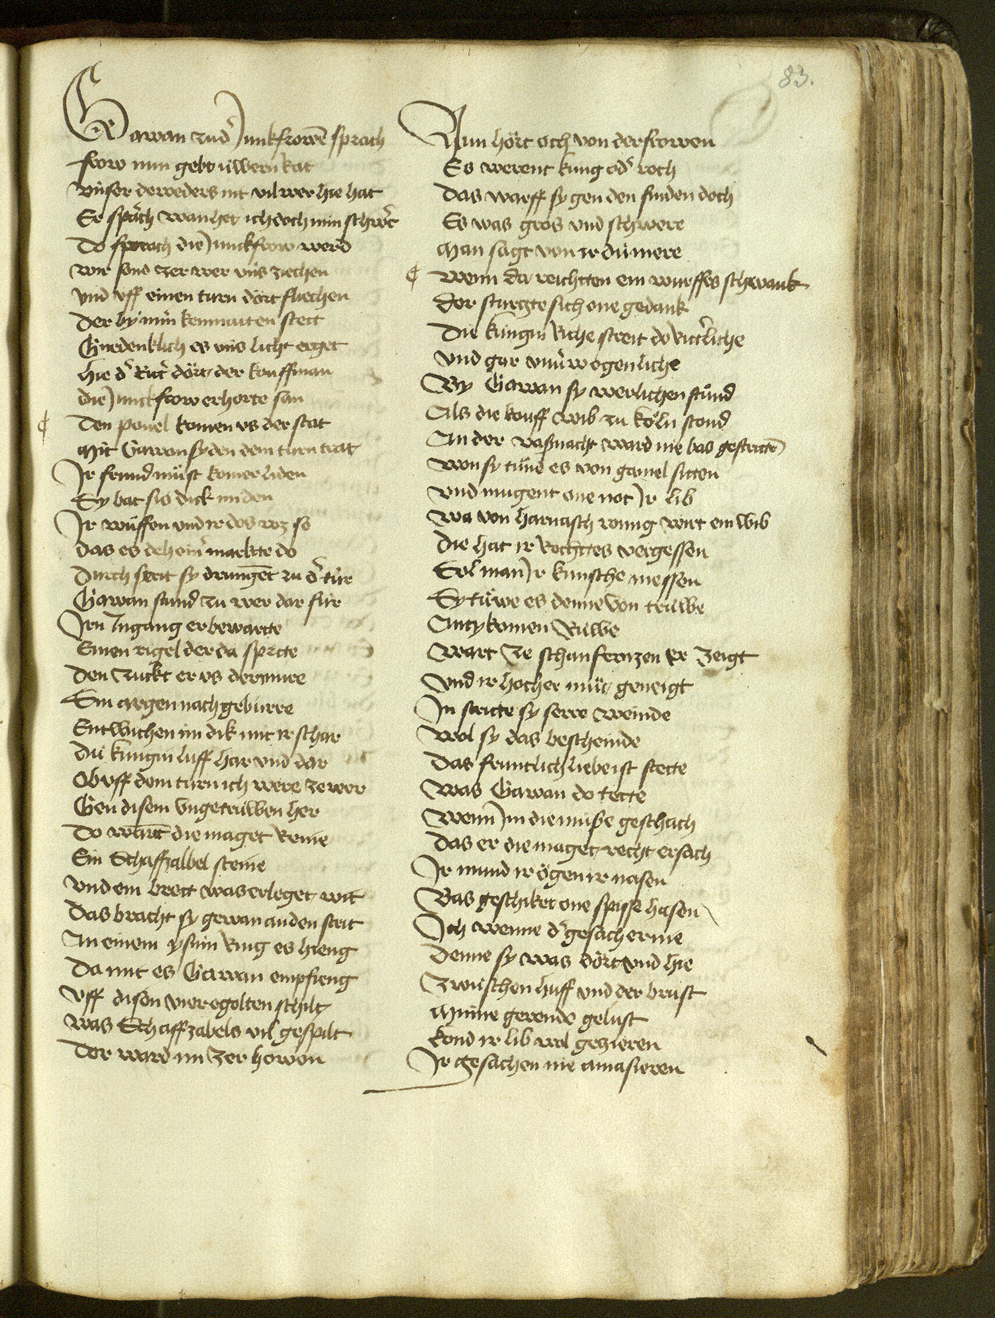 83.
Gawan zud° Junkfrowē sprach
frow nun gebt üwern rat
vnser deweders nit vil wer hie hat
Er sprach wan het ich doch min schwt
Do sprach die Junckfrow werd
wir sond zer wer vns ziechen
vnd vff einen turn dört fliechen
Der by min kemnaten stett
Gnedenklich es vns licht erget
hie d° Ritt° dört der kouffman
die Junckfrow erhorte san
Den pouel komen vs der stat
Mit Gawan sy den dem turn trat
Ir frund müst komer liden
Sy bat sis dick miden
Ir wüffen vnd ir doß woz so
das es dehein° markte do
Durch strit sy drungēt zu d° tür
Gawan stund zu wer dar für
Irn Ingang er bewarte
Einen rigel der da sperte
Den Zuckt er vs der mure
Sin argen nachgebürre
Entwichen im dik mit ir schar
Dü küngin luff har vnd dar
Ob vff dem turn ich were ze wer
Gen disem vngetrüwen her
Do want die maget Reine
Ein Schaffzalbel steine
vnd ein brett was erleget wit
Das bracht sy gewan an den strit
An einem ysnin Ring es hieng
Da mit es Gawan empfieng
vff disen vieregolten schilt
was Schaffzabels vil gespilt
Der ward im zer howen
Nun hört och von der frowen
Es werent küng od° roch
Das warff sy gen den finden doch
Es was gros vnd schwere
Man sagt von ir dü mere
Wenn da reichtten ein wurffes schwank
Der sturgte sich one gedank
Die küngin riche streit do ritt°liche
vnd gar vnuerwogenliche
By Gawan sy werlichen stünd
Als die kouff wib zu köln stond
An der vaßnacht ward nie bas gestrittē
won sy tünd es von gamel sitten
vnd mugent one not Ir lib
wa von harnasch romg wirt ein wib
Die hat ir Rechttes vergessen
Sol man Ir künsche messen
Sy tüwe es denne von trüwe
Antykonien Rüwe
Wart ze schanfenzen Er zeigt
vnd ir hocher müt geneigt
In stritte sy serre weinde
Wol sy das bescheinde
Das fruntlich liebe ist stette
Was Gawan do tette
Wenn Im die müße geschach
Das er die maget recht ersach
Ir mund ir ögen ir nasen
Bas geschiket one spisse hasen
Ich wenne d° gesächer nie
Denne sy was dört vnd hie
Zwüschen huff vnd der brust
Minne gerende gelust
kond ir lib wol gezieren
Ir gesachen nie amasieren